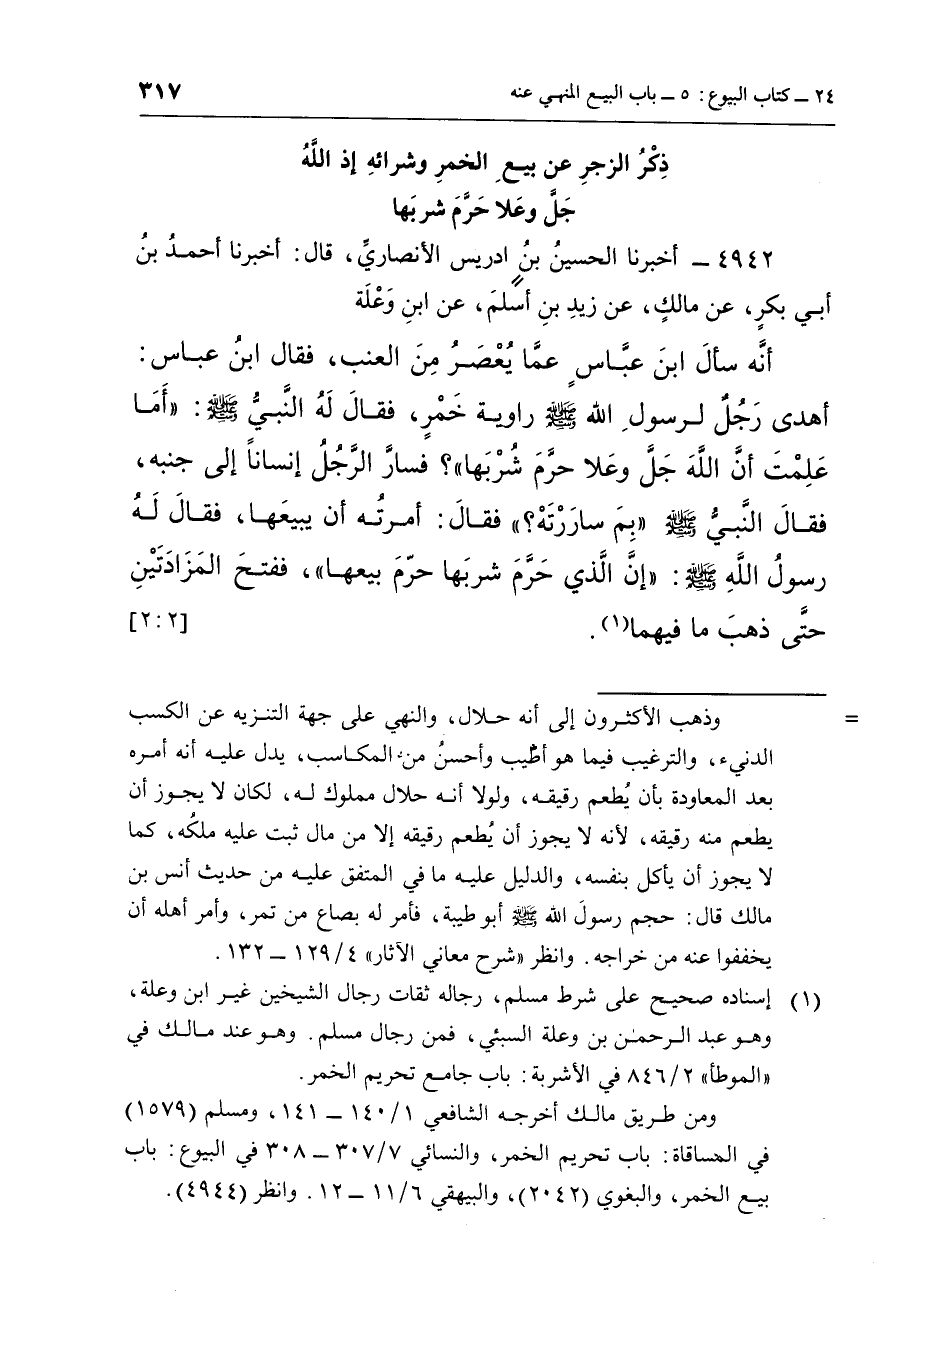 ٢٤ ــ كتاب البيوع: ٥ ــ باب البيع المنهي عنه ٣١٧
ذِكْرُ الزجرِ عن بيعِ الخمرِ وشرائهِ إذ اللَّهُ
جَلَّ وعَلا حَرَّمَ شربَها
٤٩٤٢ ــ أخبرنا الحسينُ بنُ ادريس الأنصاريِّ، قال: أخبرنا أحمدُ بنُ
أبي بكرٍ، عن مالكٍ، عن زيدِ بنِ أسْلَمَ، عن ابنِ وَعْلَة
أنَّه سألَ ابنَ عبَّاسٍ عمَّا يُعْصَرُ مِنَ العنب، فقال ابنُ عباس:
أهدى رَجُلٌ لرسولِ الله ﷺ راوية خَمْرٍ، فقالَ لَهُ النَّبيُّ ﷺ: «أَمَا
عَلِمْتَ أنَّ اللَّهَ جَلَّ وعَلا حرَّمَ شُرْبَها»؟ فسارَّ الرَّجُلُ إنساناً إلى جنبه،
فقالَ النَّبيُّ ﷺ «بِمَ سارَرْتَهْ؟» فقالَ: أمرتُه أن يبيعَها، فقالَ لَهُ
رسولُ اللَّهِ ﷺ: «إنَّ الَّذي حَرَّمَ شربَها حرّمَ بيعها»، ففتحَ المَزَادَتَيْنِ
حتَّى ذهبَ ما فيهما(١). [٢:٢]
= وذهب الأكثرون إلى أنه حلال، والنهي على جهة التنزيه عن الكسب
الدنيء، والترغيب فيما هو أطْيب وأحسنُ من المكاسب، يدل عليه أنه أمره
بعد المعاودة بأن يُطعم رقيقه، ولولا أنه حلال مملوك له، لكان لا يجوز أن
يطعم منه رقيقه، لأنه لا يجوز أن يُطعم رقيقه إلا من مال ثبت عليه ملكُه، كما
لا يجوز أن يأكل بنفسه، والدليل عليه ما في المتفق عليه من حديث أنس بن
مالك قال: حجم رسولَ الله ﷺ أبو طيبة، فأمر له بصاع من تمر، وأمر أهله أن
يخففوا عنه من خراجه. وانظر «شرح معاني الآثار» ١٢٩/٤ ــ ١٣٢.
(١) إسناده صحيح على شرط مسلم، رجاله ثقات رجال الشيخين غير ابن وعلة،
وهو عبد الرحمٰن بن وعلة السبئي، فمن رجال مسلم. وهو عند مالك في
«الموطأ» ٨٤٦/٢ في الأشربة: باب جامع تحريم الخمر.
ومن طريق مالك أخرجه الشافعي ١٤٠/١ ــ ١٤١، ومسلم (١٥٧٩)
في المساقاة: باب تحريم الخمر، والنسائي ٣٠٧/٧ ــ ٣٠٨ في البيوع: باب
بيع الخمر، والبغوي (٢٠٤٢)، والبيهقي ١١/٦ ــ ١٢. وانظر (٤٩٤٤).